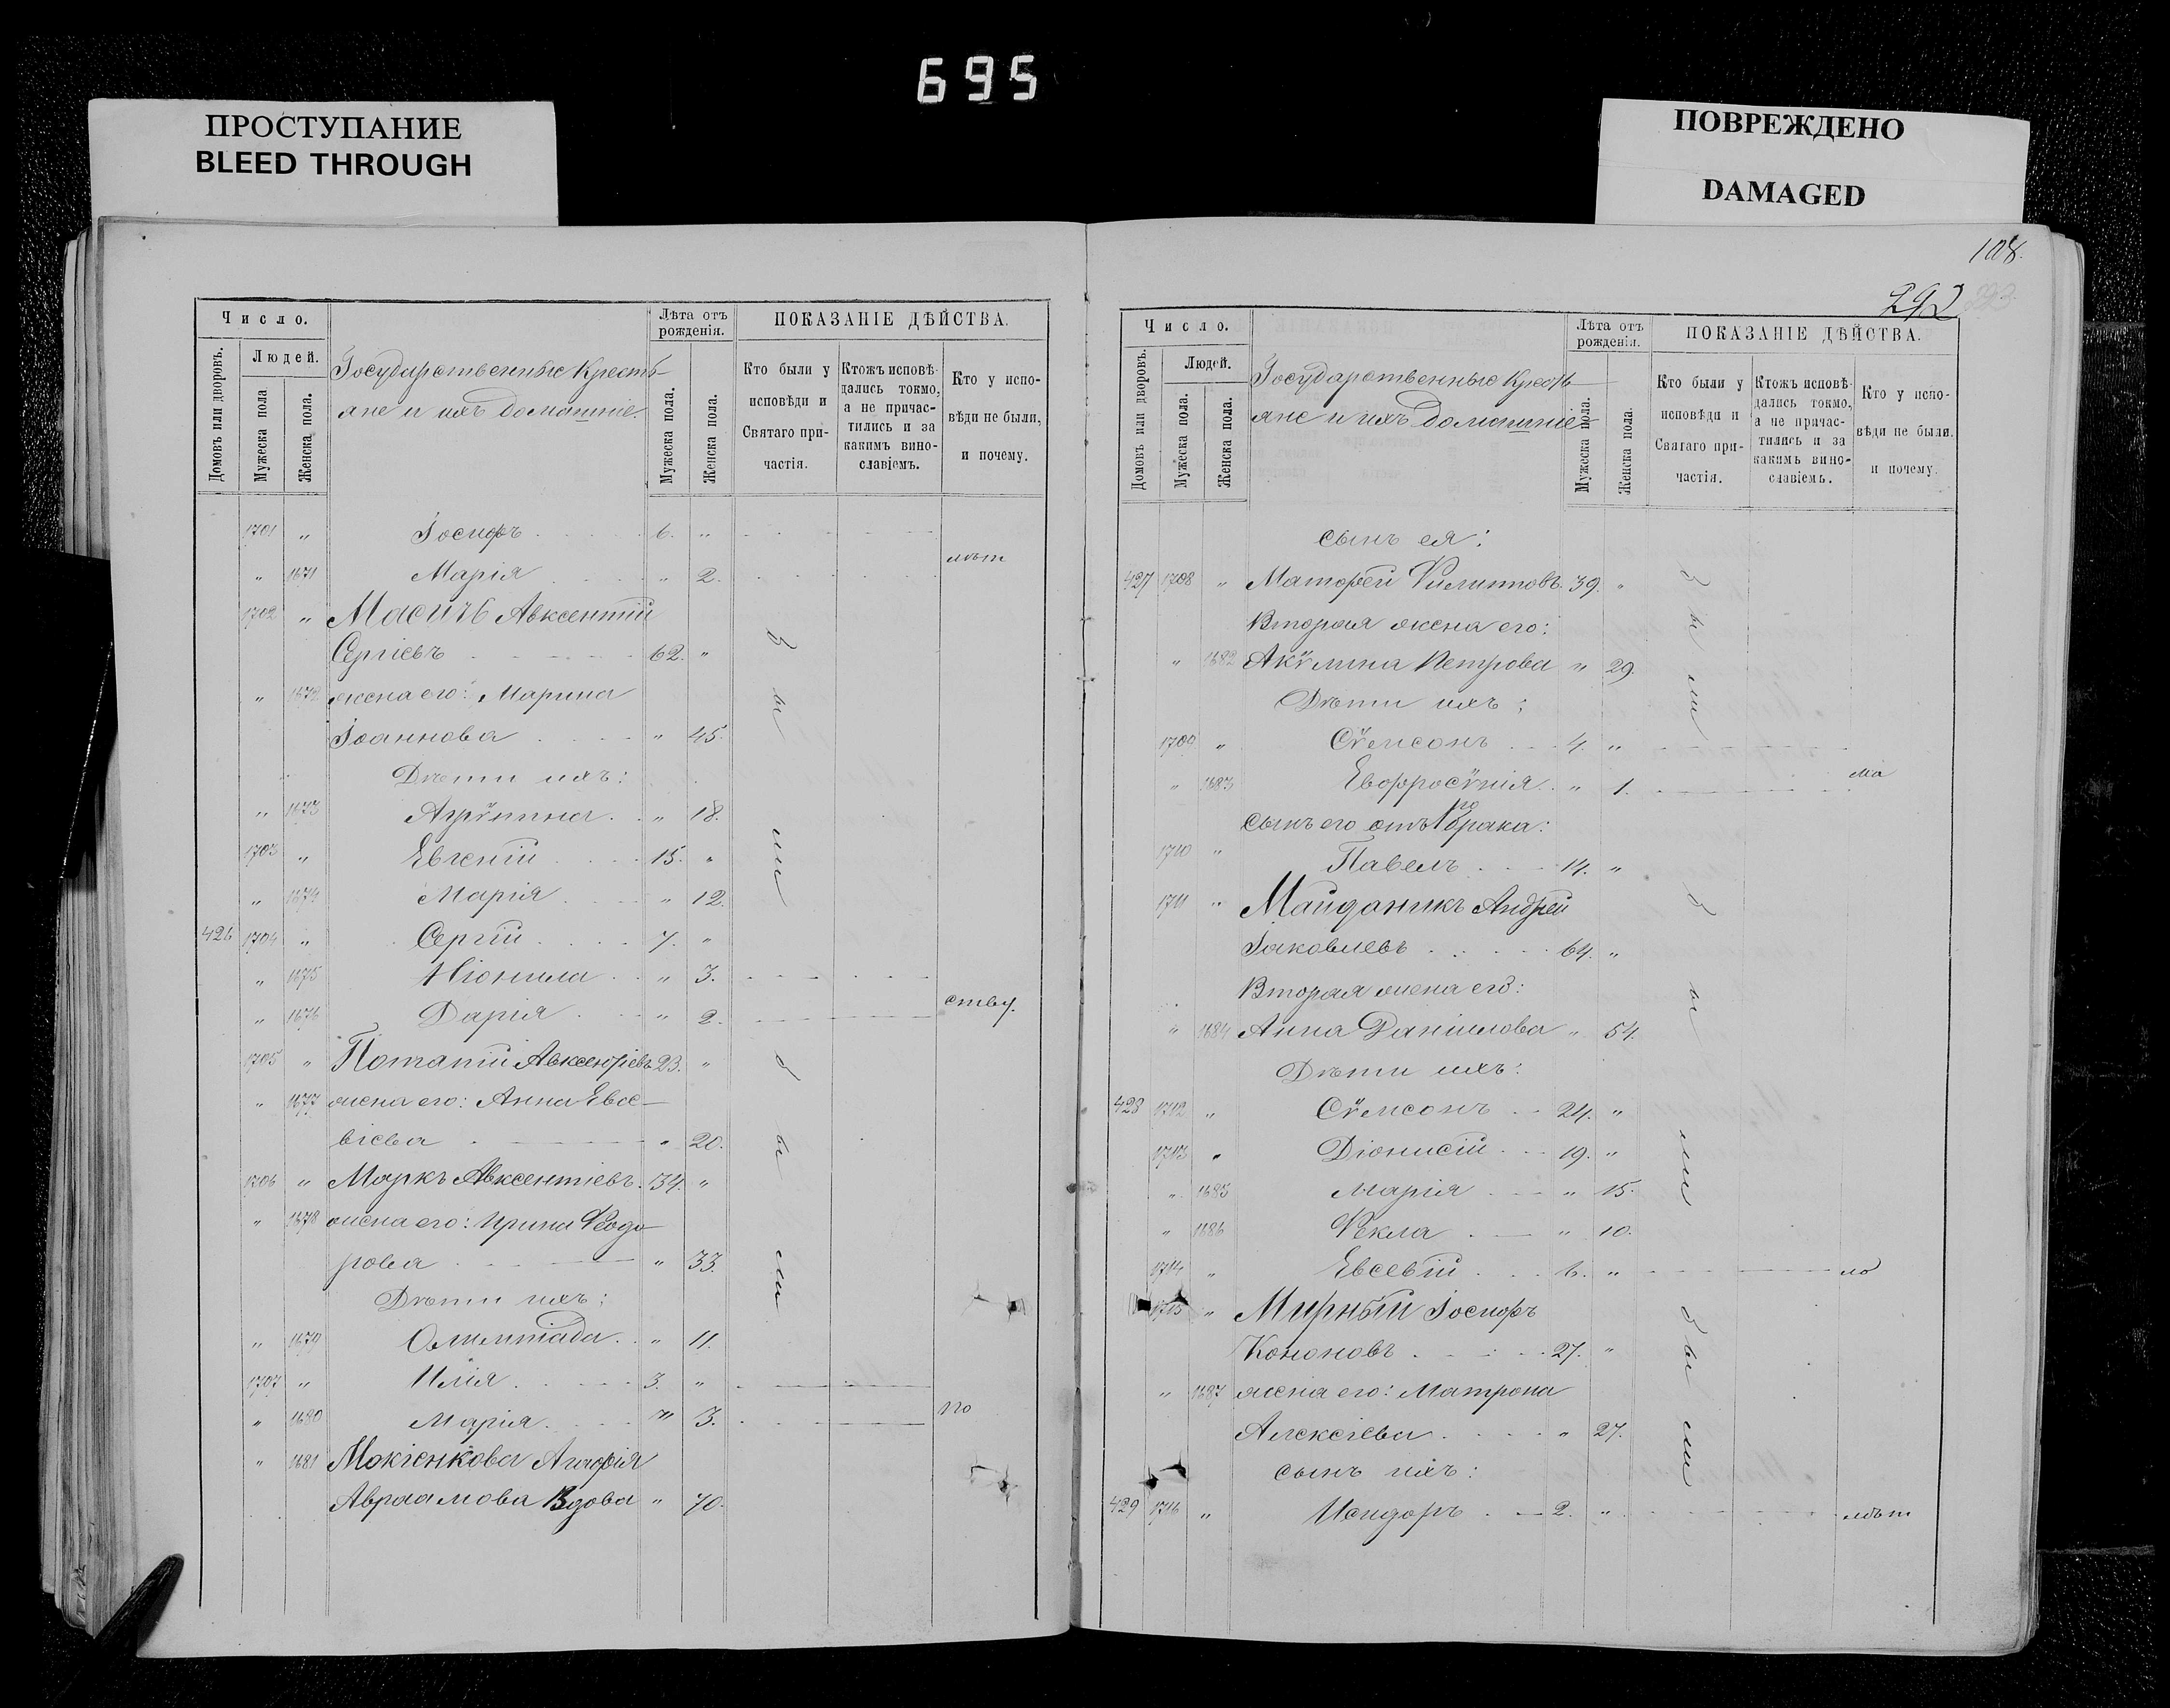 695
ПРОСТУПАНИЕ
BLEED THROUGH
ПОВРЕЖДЕНО
DAMAGED
Число.
Людей.
Домовъ или дворовъ.
Мужеска пола
Женска пола.
Государственные Кресть-
яне и ихъ домашніе.
Лѣта отъ
рожденія.
Мужеска пола.
Женска пола.
ПОКАЗАНІЕ ДѢЙСТВА.
Кто были у
исповѣди и
Святаго при-
частія.
Ктожъ исповѣ-
дались токмо,
а не причас-
тились и за
какимъ вино-
славіемъ.
Кто у испо-
вѣди не были,
и почему.
1701 " Іосифъ 6. "
" 1671 Марія " 2. лѣт
1702 " Масичъ Авксентій
Сергіевъ 62. "
" 1672 жена его: Марина
Іоаннова " 45.
Дѣти ихъ:
" 1673 Агрѵпина " 18.
1703 " Евгеній 15. "
" 1674 Марія " 12.
426 1704 " Сергій 7. "
" 1675 Неонила " 3.
" 1676 Дарія " 2. ству.
1705 " Потапій Авксентіевъ 23. "
" 1677 жена его: Анна Евсе-
віева " 20.
1706 " Маркъ Авксентіевъ 34. "
" 1678 жена его: Ирина Ѳеодо-
рова " 33.
Дѣти ихъ:
" 1679 Олимпіада " 11.
1707 " Илія 3. "
" 1680 Марія " 3. по
" 1681 Мокіенкова Агафія
Авраамова Вдова " 70.
бы
ли
бы
ли
108.
292
Число.
Людей.
Домовъ или дворовъ.
Мужеска пола.
Женска пола.
Государственные Кресть-
яне и ихъ домашніе
Лѣта отъ
рожденія.
Мужеска пола.
Женска пола.
ПОКАЗАНІЕ ДѢЙСТВА.
Кто были у
исповѣди и
Святаго при-
частія.
Ктожъ исповѣ-
дались токмо,
а не причас-
тились и за
какимъ вино-
славіемъ.
Кто у испо-
вѣди не были.
и почему.
сынъ ея:
427 1708 " Матѳей Филипповъ 39. "
Вторая жена его:
" 1682 Акѵлина Петрова " 29.
Дѣти ихъ:
1709 " Сѵмеонъ 4. "
" 1683 Евфросѵнія " 1. ма
сынъ его отъ 1го брака:
1710 " Павелъ 14. "
1711 " Майданикъ Андрей
Іаковлевъ 64. "
Вторая жена его:
" 1684 Анна Даніилова " 54.
Дѣти ихъ:
428 1712 " Сѵмеонъ 24. "
1713 " Діонисій 19. "
" 1685 Марія " 15.
" 1686 Ѳекла " 10.
1714 " Евсевій 6. " ло
1715 " Мирный Іосифъ
Кононовъ 27. "
" 1687 жена его: Матрона
Алексіева " 27.
сынъ ихъ:
429 1716 " Исидоръ 2. " лѣт
бы
ли
бы
ли
бы
ли